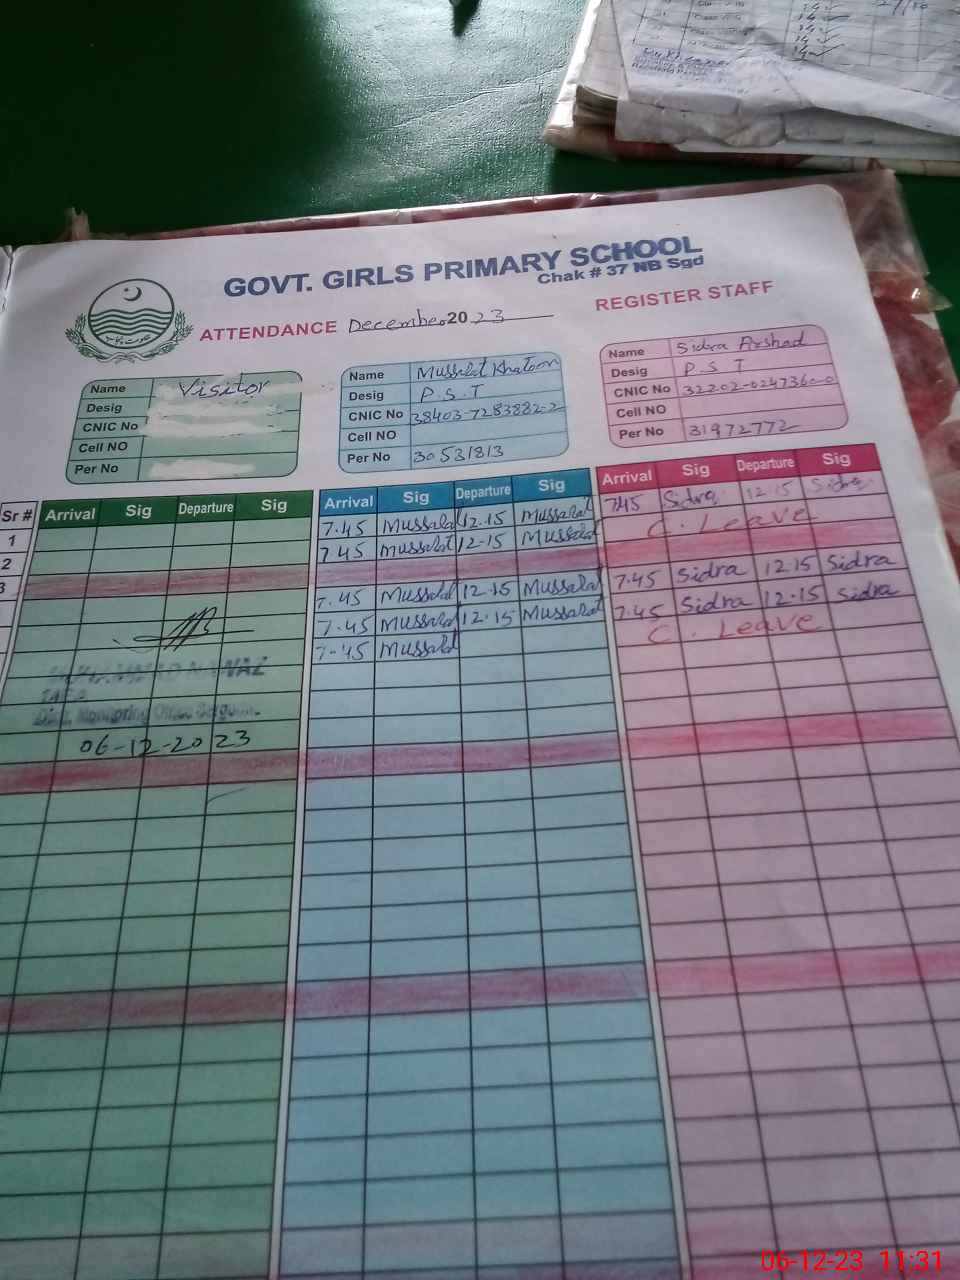 GOVT. GIRLS PRIMARY SCHOOL
Chak # 37 NB Sgd
ATTENDANCE December 2023
REGISTER STAFF
Name Visitor
Desig
CNIC No
Cell NO
Per No
Name Mussalat Khatoon
Desig P.S.T
CNIC No 38403-7283882-2
Cell NO
Per No 30531813
Name Sidra Arshad
Desig P.S.T
CNIC No 32202-0247360-0
Cell NO
Per No 31972772
Sr # Arrival Sig Departure Sig Arrival Sig Departure Sig Arrival Sig Departure Sig
1 7.45 Mussalat 12.15 Mussalat 7.45 Sidra 12.15 Sidra
2 7.45 Mussalat 12-15 Mussalat C. Leave
3
7.45 Mussalat 12.15 Mussalat 7.45 Sidra 12.15 Sidra
7.45 Mussalat 12.15 Mussalat 7.45 Sidra 12.15 Sidra
7-45 Mussalat C. Leave
MUHAMMAD NAWAZ
06-12-2023
06-12-23 11:31